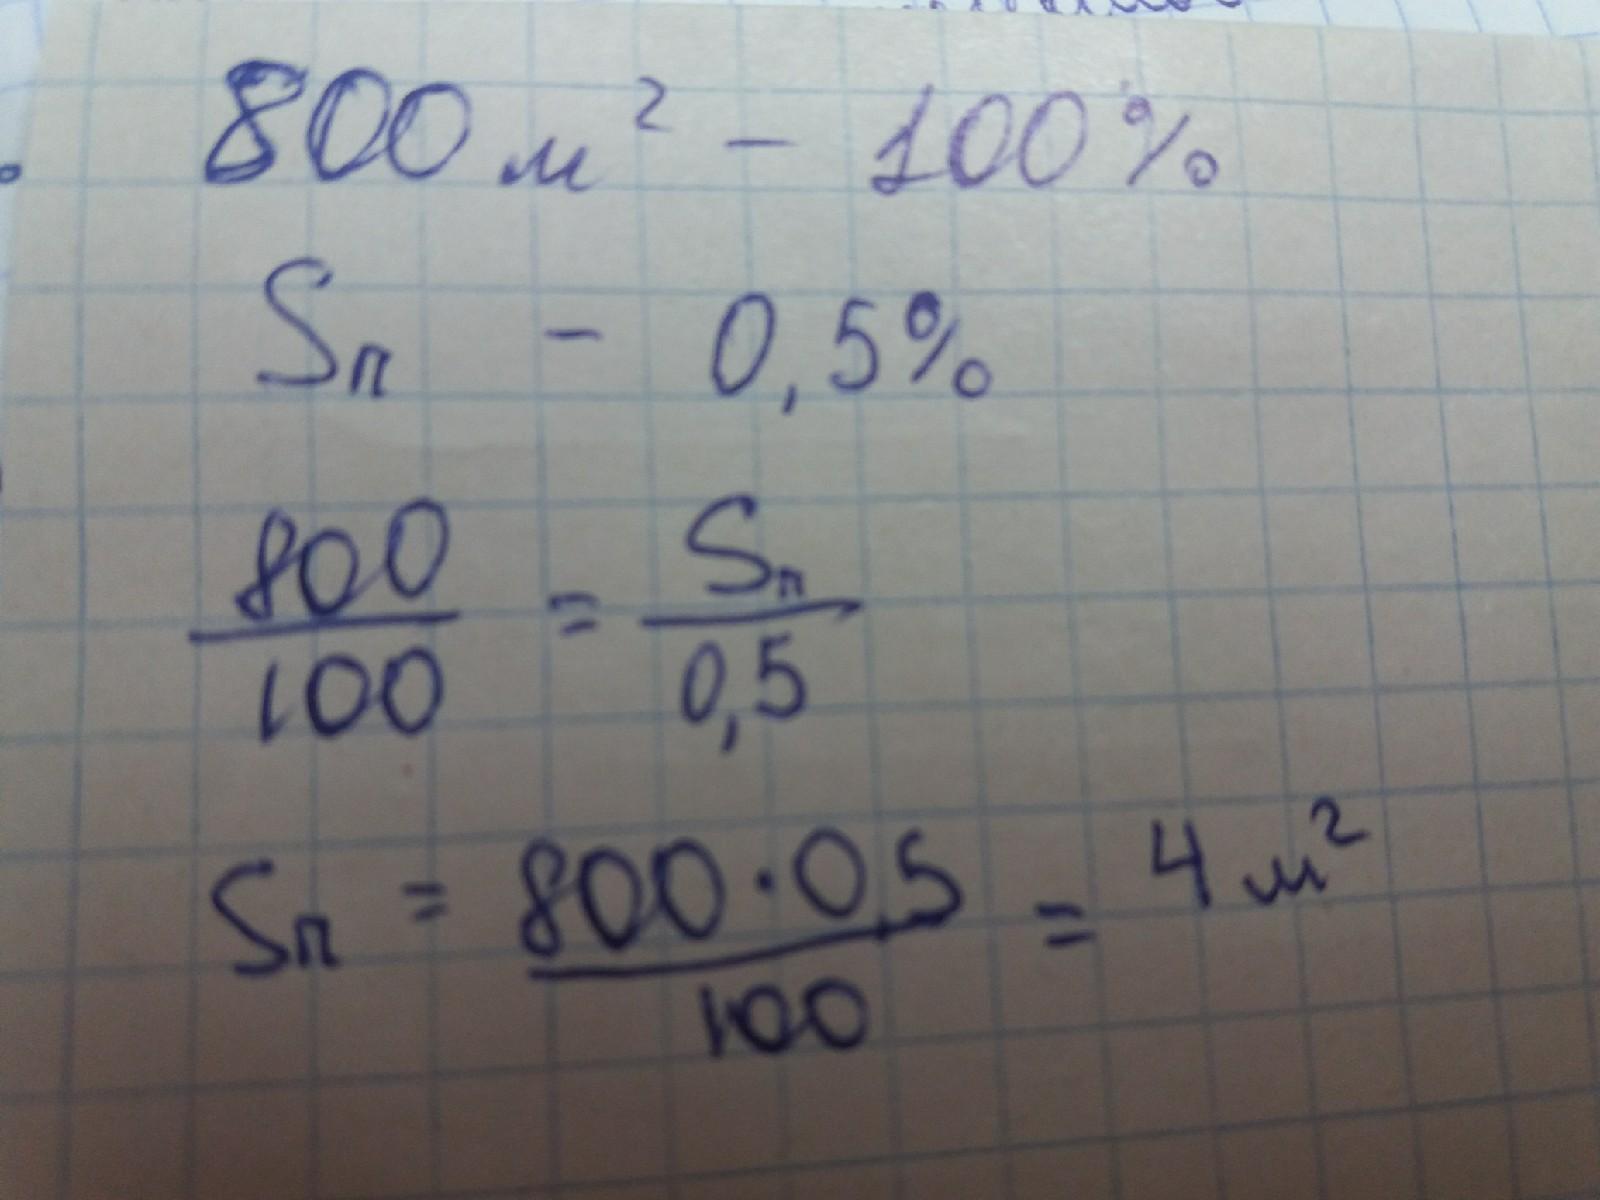 800 м² – 100%
Sп – 0,5%
800/100 = Sп/0,5
Sп = 800·0,5/100 = 4 м²